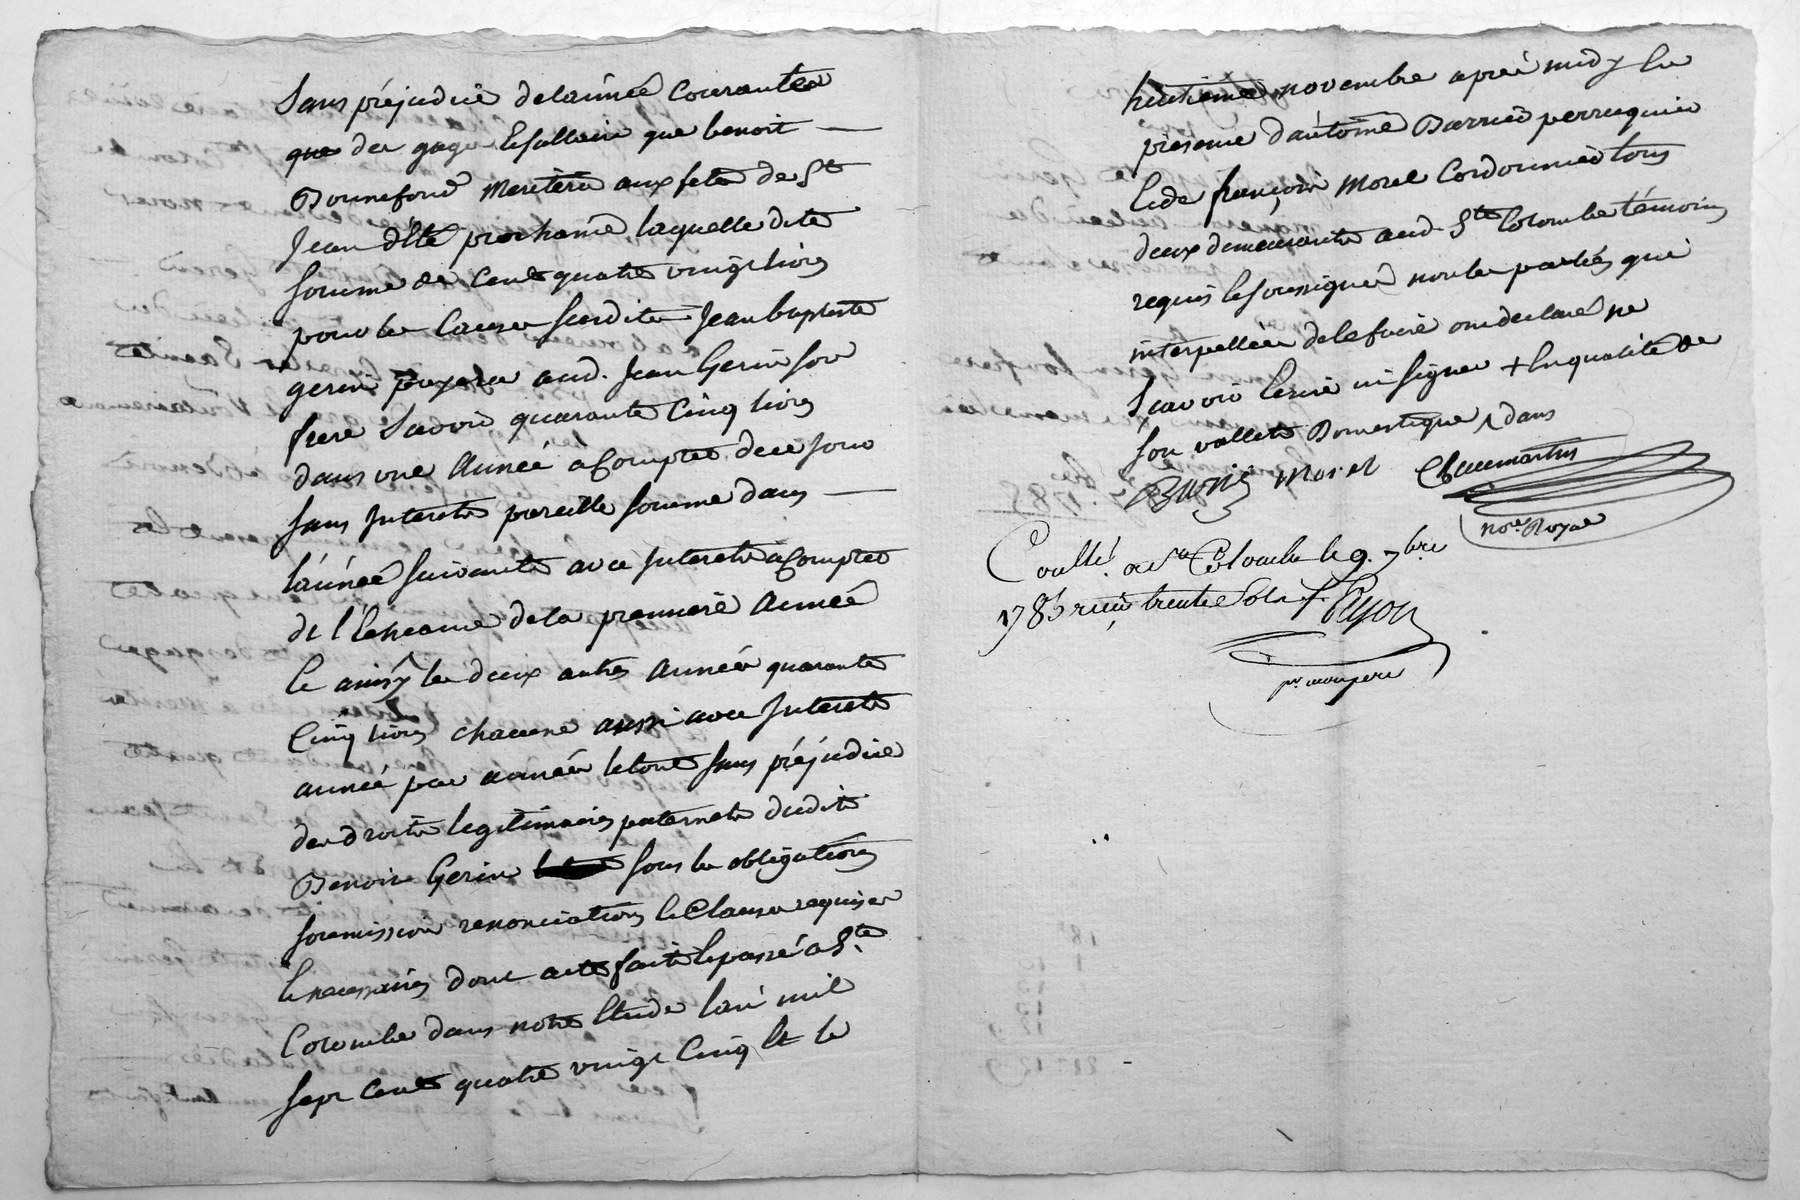 Sans préjudice de lannée Courantes
que des gages & sallaire que benoit —
Bonnefond Meritera aux fetes de St
Jean d'Eté prochaine laquelle dite
somme de Cent quatre vingt livres
pour les Causes susdites Jean baptiste
gerin payera aud. Jean Gerin son
frere Scavoir quarante Cinq livres
dans une Année à Compter de ce jour
sans Interets pareille somme dans —
l'année suivante avec Interets a Compter
de l'Echeance de la premiere Année
Et ainsy les deux autres Années quarante
Cinq livres chacune aussi avec Interets
année par année le tout sans préjudice
des droits legitimaires paternels dudit
Benoit Gerin sous les obligations
soumissions renonciations & Clauses requises
& necessaires dont acte fait & passé a Ste
Colombe dans notre Etude l'an mil
sept Cent quatre vingt Cinq Et le
huitieme novembre après midy En
présence d'antoine Barrier perruquier
& de françois Morel Cordonnier tous
deux demeurants aud. Ste Colombe témoins
requis & soussignés non les parties qui
interpellées de le faire ont declaré ne
Scavoir Ecrire ni signer + En qualité de
son vallet Domestique, dans
Morel Chaumartin
nore Royal
Conllé a Ste Colombe le 9. 9bre
1785 reçu trente sols
pr mon pere